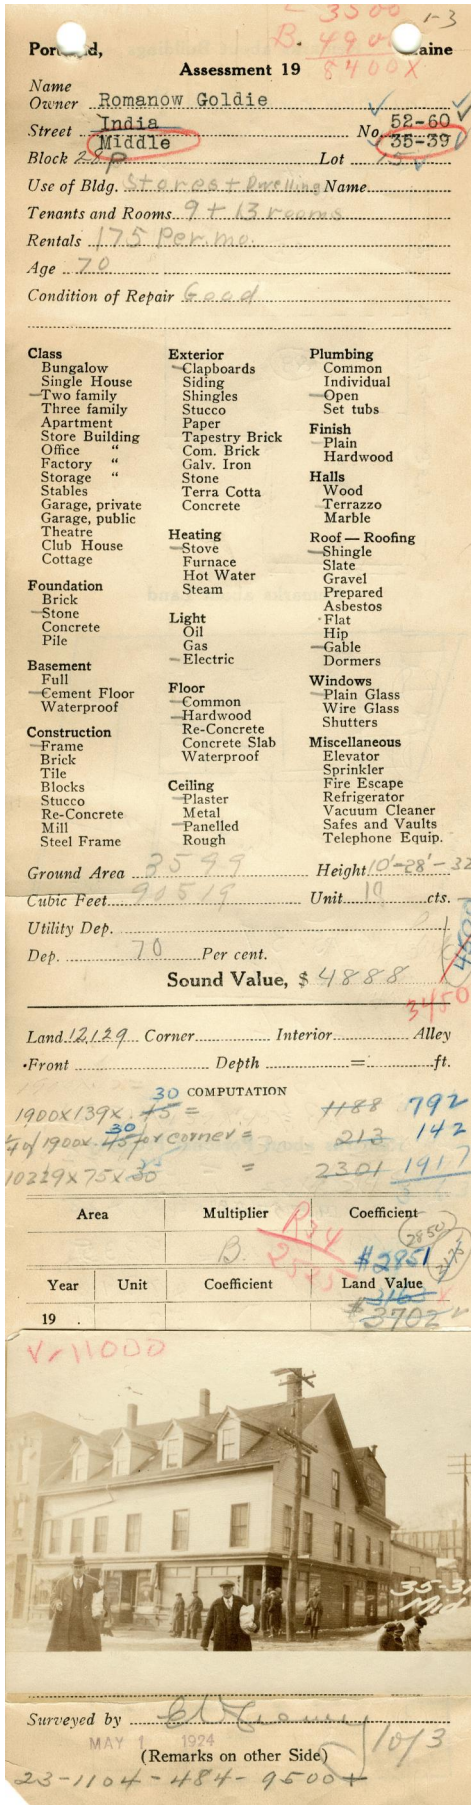 L 3500
1-3
B. 4900
8400X
Portland, Maine
Assessment 19
Name
Owner Romanow Goldie
Street India No. 52-60
Middle 35-39
Block Lot
Use of Bldg. Stores + Dwelling Name
Tenants and Rooms 9 + 13 rooms
Rentals 175 Per. mo.
Age 70
Condition of Repair Good
Class
Bungalow
Single House
Two family
Three family
Apartment
Store Building
Office "
Factory "
Storage "
Stables
Garage, private
Garage, public
Theatre
Club House
Cottage
Foundation
Brick
Stone
Concrete
Pile
Basement
Full
Cement Floor
Waterproof
Construction
Frame
Brick
Tile
Blocks
Stucco
Re-Concrete
Mill
Steel Frame
Exterior
Clapboards
Siding
Shingles
Stucco
Paper
Tapestry Brick
Com. Brick
Galv. Iron
Stone
Terra Cotta
Concrete
Heating
Stove
Furnace
Hot Water
Steam
Light
Oil
Gas
Electric
Floor
Common
Hardwood
Re-Concrete
Concrete Slab
Waterproof
Ceiling
Plaster
Metal
Panelled
Rough
Plumbing
Common
Individual
Open
Set tubs
Finish
Plain
Hardwood
Halls
Wood
Terrazzo
Marble
Roof — Roofing
Shingle
Slate
Gravel
Prepared
Asbestos
Flat
Hip
Gable
Dormers
Windows
Plain Glass
Wire Glass
Shutters
Miscellaneous
Elevator
Sprinkler
Fire Escape
Refrigerator
Vacuum Cleaner
Safes and Vaults
Telephone Equip.
Ground Area 3599 Height 10'-28'-32
Cubic Feet 90519 Unit cts.
Utility Dep.
4500
Dep. 70 Per cent.
Sound Value, $ 4888
3450
Land 12,129 Corner Interior Alley
Front Depth = ft.
COMPUTATION
30
1900 X 139 X 45 = 1188 792
30
1/4 of 1900 X 45 for corner = 213 142
10229 X 75 X 30 = 2301 1917
Area Multiplier Coefficient
B.
2850
3175
$2851
Year Unit Coefficient Land Value
3163 X
19 . $3702
V-11000
35-39
Mid
Surveyed by
MAY 1 1924
10/3
(Remarks on other Side)
23-1104-484-9500+